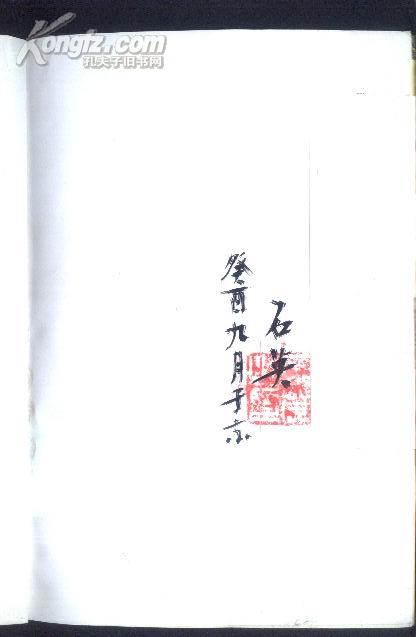 Kongfz.com
孔夫子旧书网
石英
癸酉九月于京